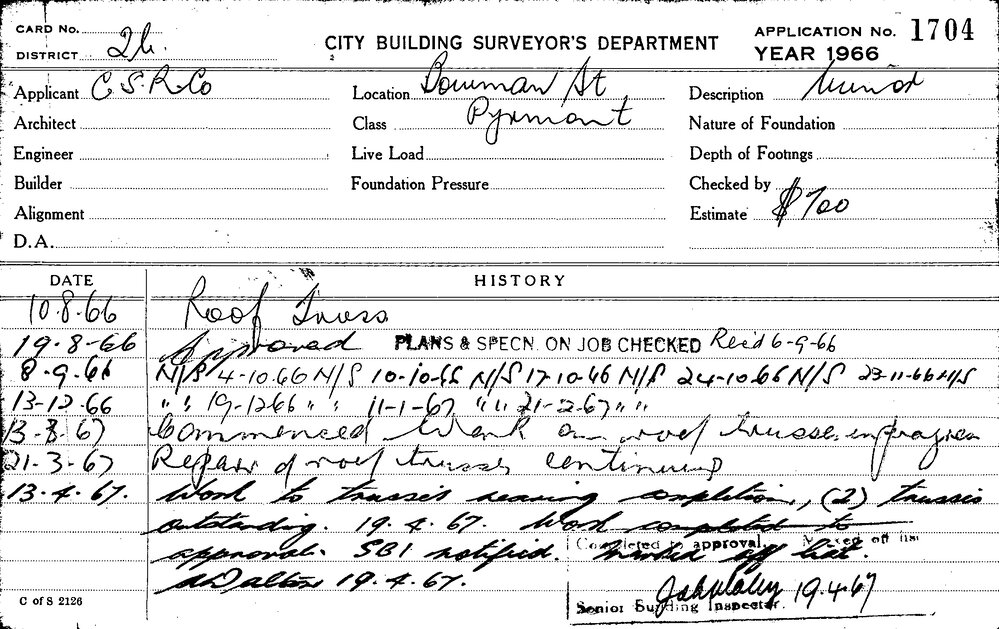 CARD No.
DISTRICT 2h.
CITY BUILDING SURVEYOR'S DEPARTMENT
APPLICATION No. 1704
YEAR 1966
Applicant C.S.R.Co
Location Bowman St
Description Minor
Architect
Class Pyrmont
Nature of Foundation
Engineer
Live Load
Depth of Footings
Builder
Foundation Pressure
Checked by
Alignment
Estimate $700
D.A.
DATE HISTORY
10.8.66 Roof Truss
19-8-66 Approved PLANS & SPECN. ON JOB CHECKED Rec'd 6-9-66
8-9.66 N/S 4-10.66 N/S 10-10-66 N/S 17-10-66 N/S 24-10.66 N/S 23-11-66 N/S
13-12.66 " " 19-1266 " " 11-1-67 " " 21-2-67 " "
13-3-67 Commenced work on roof trusses in progress
21-3-67 Repair of roof trusses continuing
13.4.67. Work to trusses nearing completion, (2) trusses
outstanding. 19.4.67. Work completed to
approval. SBI notified. Marked off list.
Completed to approval. Marked off list
A Dalton 19.4.67.
19.4.67
Senior Building Inspector.
C of S 2126